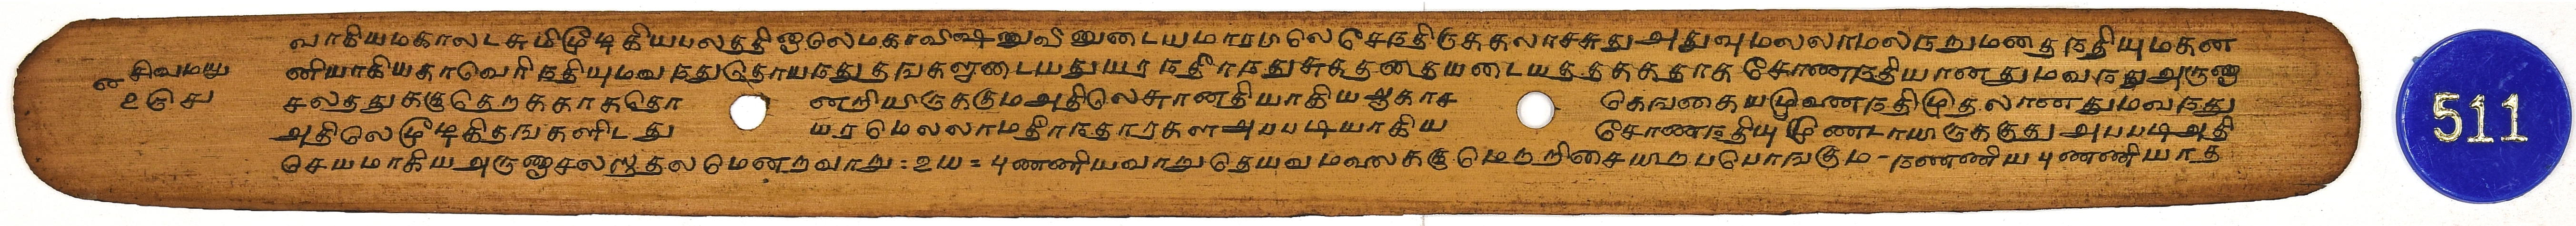 சிவமயு
ன உருசு
வாகியமகாலடசுமிமூழகியபலததினாலெமகாவிஷ்ணுவினுடையமாரபிலெசேநதிருககலாசசுதுஅதுவுமலலாமலநறுமதைநதியுமகன
னியாகியகாவெரிநதியுமவநதுதொயநதுதஙகளுடையதுயரநதீாநதுசுகததையடையததககதாக சோணநதியானதுமவநதுஅருணா
சலததுககுதெறககாகதோ னறியிருககுமஅதிலெசானதியாகியஆகாச கெஙகையமூவணநதிமுதலானதுமவநது
அதிலெமூழகிதஙகளிடது யரமெலலாமதீாநதாரகளஅபபடியாகிய சோணநதியு மூணடாயிருககுது அபபடிஅதி
செயமாகியஅருணாசலஸதலமெனறவாறு : உய = புணணியவாறுதெயவமலைககு மெறறிசையிறபபொஙகும - நணணிய புணணியாத
511